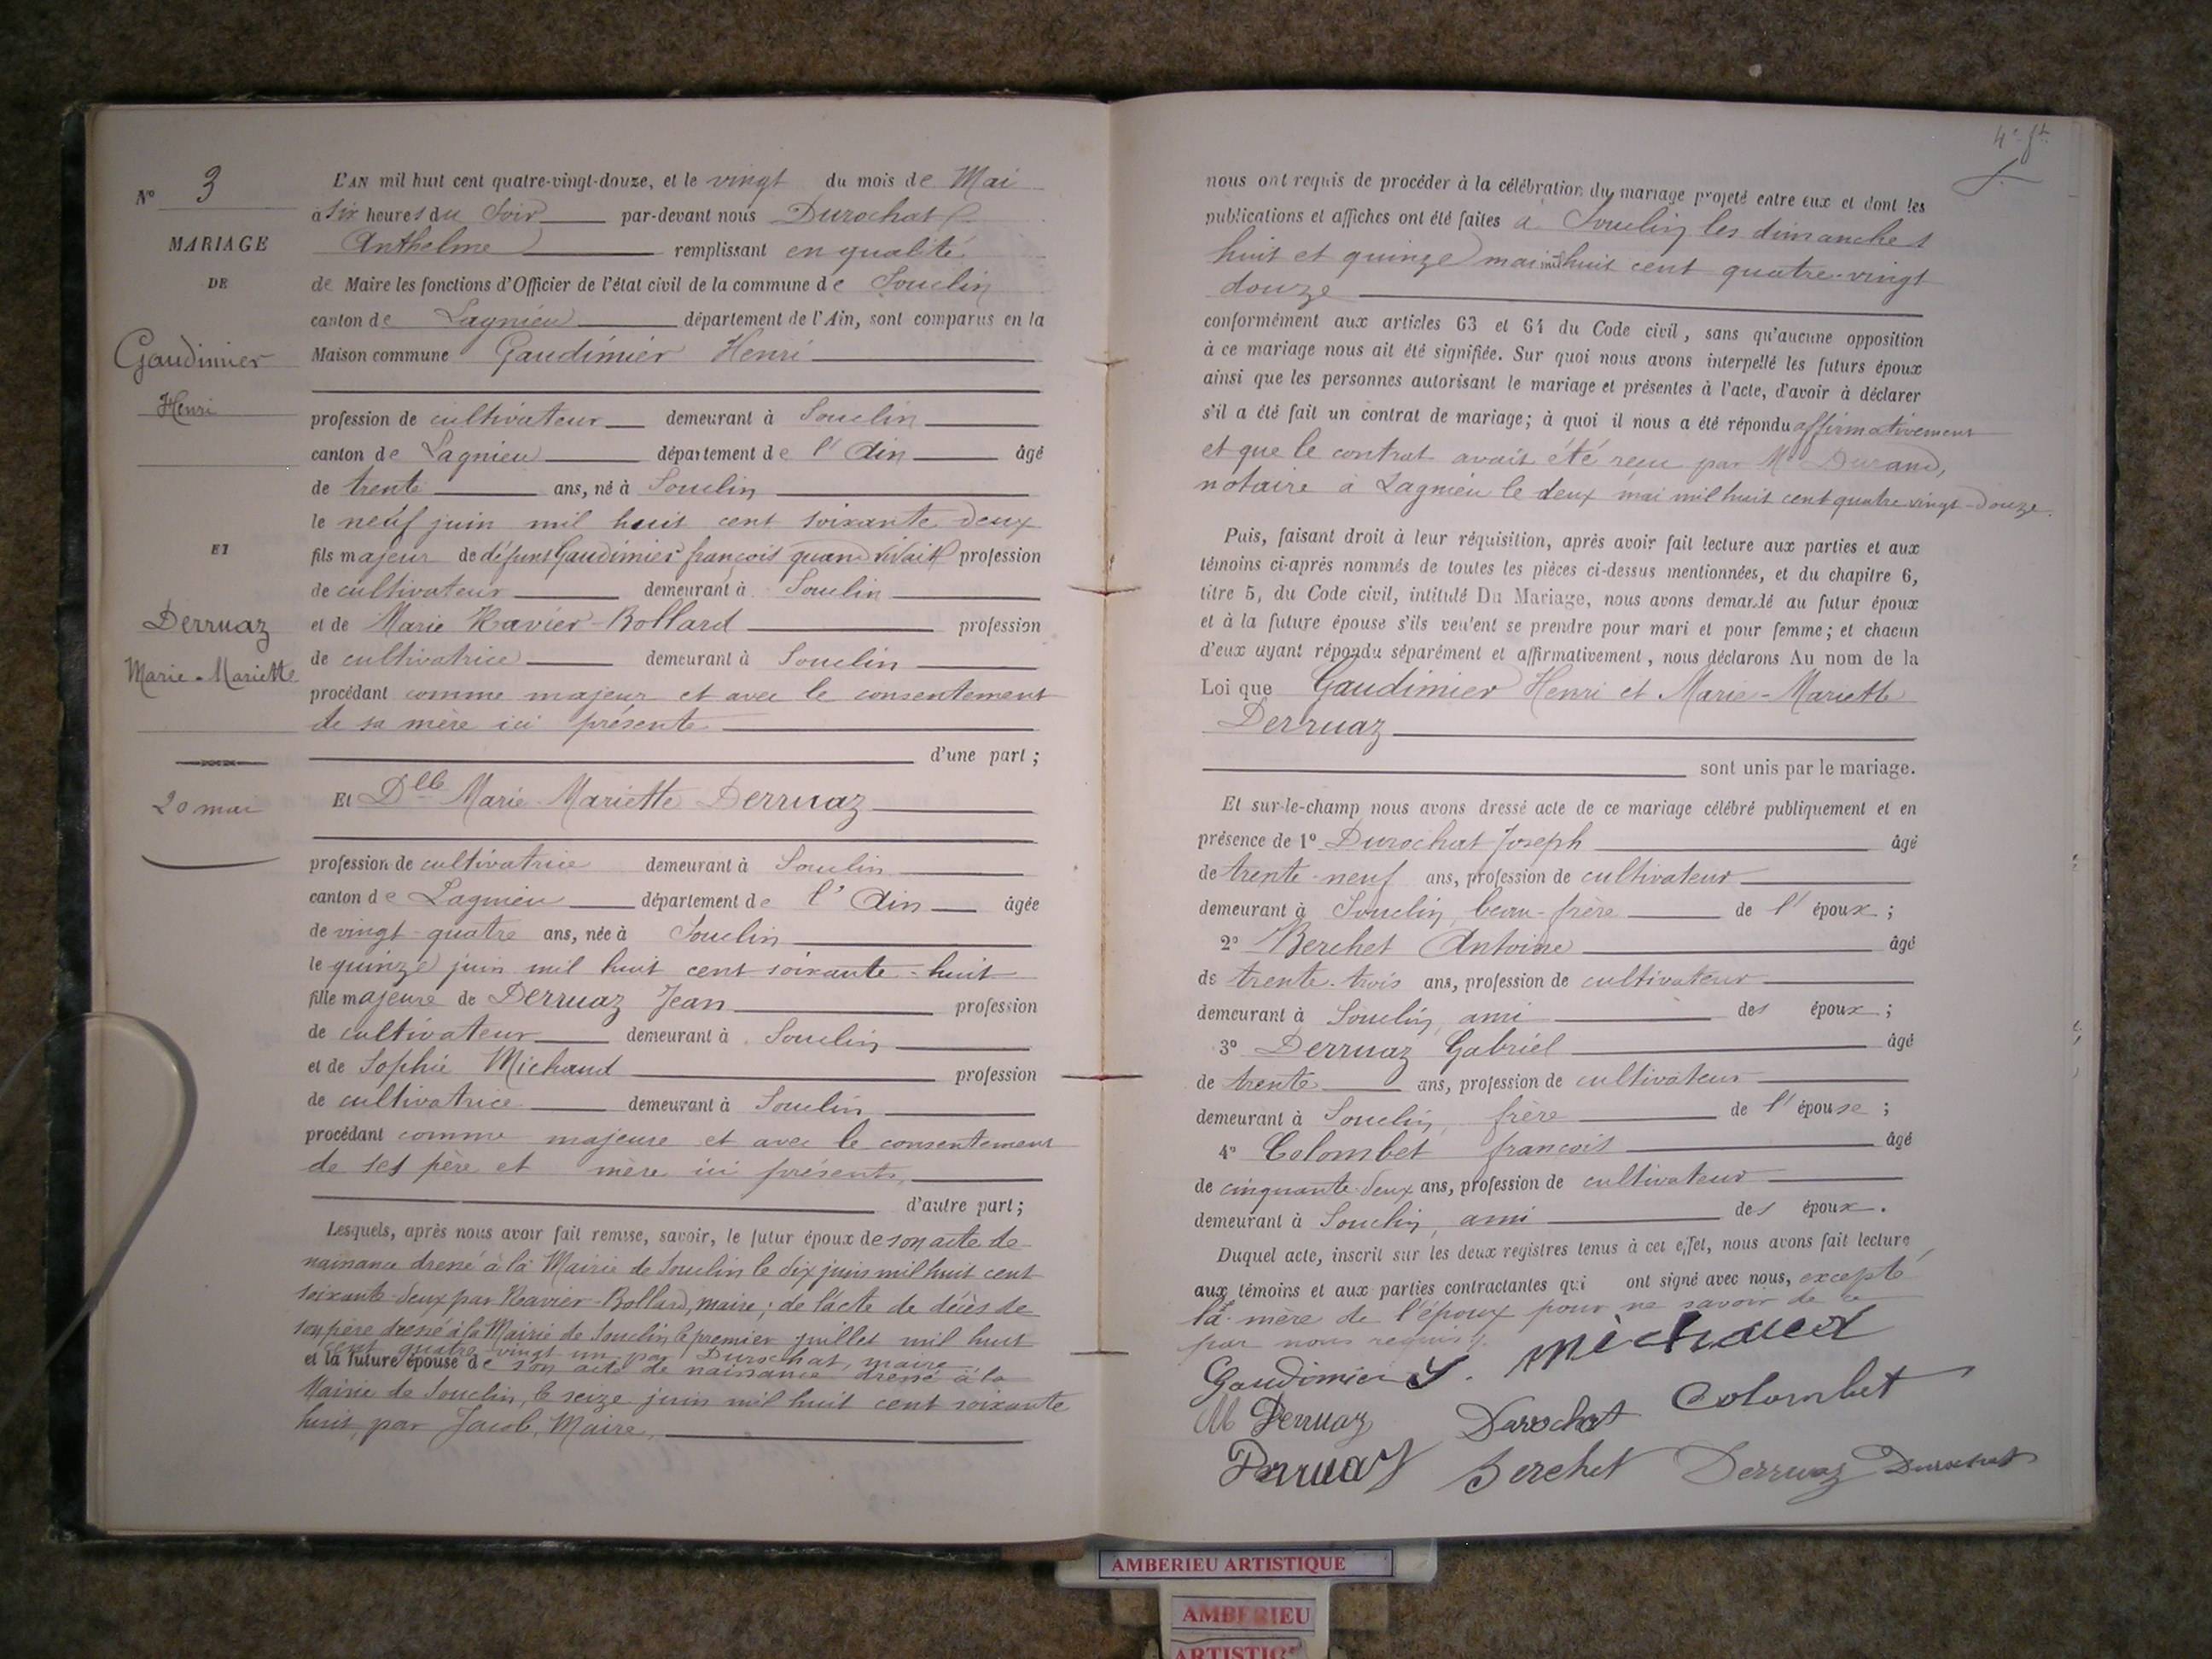 N° 3
MARIAGE
DE
Gaudimier
Henri
ET
Derruaz
Marie-Mariette
20 mai
L'AN mil huit cent quatre-vingt-douze, et le vingt du mois de Mai
à six heures du soir par-devant nous Durochat
Anthelme remplissant en qualité
de Maire les fonctions d'Officier de l'état civil de la commune de Souclin
canton de Lagnieu département de l'Ain, sont comparus en la
Maison commune Gaudimier Henri
profession de cultivateur demeurant à Souclin
canton de Lagnieu département de l'Ain âgé
de trente ans, né à Souclin
le neuf juin mil huit cent soixante deux
fils majeur de défunt Gaudimier françois quand vivait profession
de cultivateur demeurant à Souclin
et de Marie Ravier-Bollard profession
de cultivatrice demeurant à Souclin
procédant comme majeur et avec le consentement
de sa mère ici présente
d'une part ;
Et Dlle Marie Mariette Derruaz
profession de cultivatrice demeurant à Souclin
canton de Lagnieu département de l'Ain âgée
de vingt-quatre ans, née à Souclin
le quinze juin mil huit cent soixante-huit
fille majeure de Derruaz Jean profession
de cultivateur demeurant à Souclin
et de Sophie Michaud profession
de cultivatrice demeurant à Souclin
procédant comme majeure et avec le consentement
de ses père et mère ici présents,
d'autre part ;
Lesquels, après nous avoir fait remise, savoir, le futur époux de son acte de
naissance dressé à la Mairie de Souclin le dix juin mil huit cent
soixante-deux par Ravier-Bollard, maire ; de l'acte de décès de
son père dressé à la Mairie de Souclin le premier juillet mil huit
cent quatre vingt un par Durochat, maire
et la future épouse de son acte de naissance dressé à la
Mairie de Souclin, le seize juin mil huit cent soixante
huit, par Jacob, Maire,
4e ft
nous ont requis de procéder à la célébration du mariage projeté entre eux et dont les
publications et affiches ont été faites à Souclin les dimanches
huit et quinze mai mil huit cent quatre-vingt
douze
conformément aux articles 63 et 64 du Code civil, sans qu'aucune opposition
à ce mariage nous ait été signifiée. Sur quoi nous avons interpellé les futurs époux
ainsi que les personnes autorisant le mariage et présentes à l'acte, d'avoir à déclarer
s'il a été fait un contrat de mariage ; à quoi il nous a été répondu affirmativement
et que le contrat avait été reçu par Me Durand,
notaire à Lagnieu le deux mai mil huit cent quatre vingt-douze.
Puis, faisant droit à leur réquisition, après avoir fait lecture aux parties et aux
témoins ci-après nommés de toutes les pièces ci-dessus mentionnées, et du chapitre 6,
titre 5, du Code civil, intitulé Du Mariage, nous avons demandé au futur époux
et à la future épouse s'ils veulent se prendre pour mari et pour femme ; et chacun
d'eux ayant répondu séparément et affirmativement, nous déclarons Au nom de la
Loi que Gaudimier Henri et Marie-Mariette
Derruaz
sont unis par le mariage.
Et sur-le-champ nous avons dressé acte de ce mariage célébré publiquement et en
présence de 1° Durochat Joseph âgé
de trente-neuf ans, profession de cultivateur
demeurant à Souclin, beau-frère de l'époux ;
2° Berchet Antoine âgé
de trente-trois ans, profession de cultivateur
demeurant à Souclin, ami des époux ;
3° Derruaz Gabriel âgé
de trente ans, profession de cultivateur
demeurant à Souclin, frère de l'épouse ;
4° Colombet françois âgé
de cinquante-deux ans, profession de cultivateur
demeurant à Souclin, ami des époux.
Duquel acte, inscrit sur les deux registres tenus à cet effet, nous avons fait lecture
aux témoins et aux parties contractantes qui ont signé avec nous, excepté
la mère de l'époux pour ne savoir de ce
par nous requis
Gaudimier S. Michaud
M Derruaz Durochat Colombet
Derruaz Berchet Derruaz Durochat
AMBERIEU ARTISTIQUE
AMBERIEU
ARTISTIQ